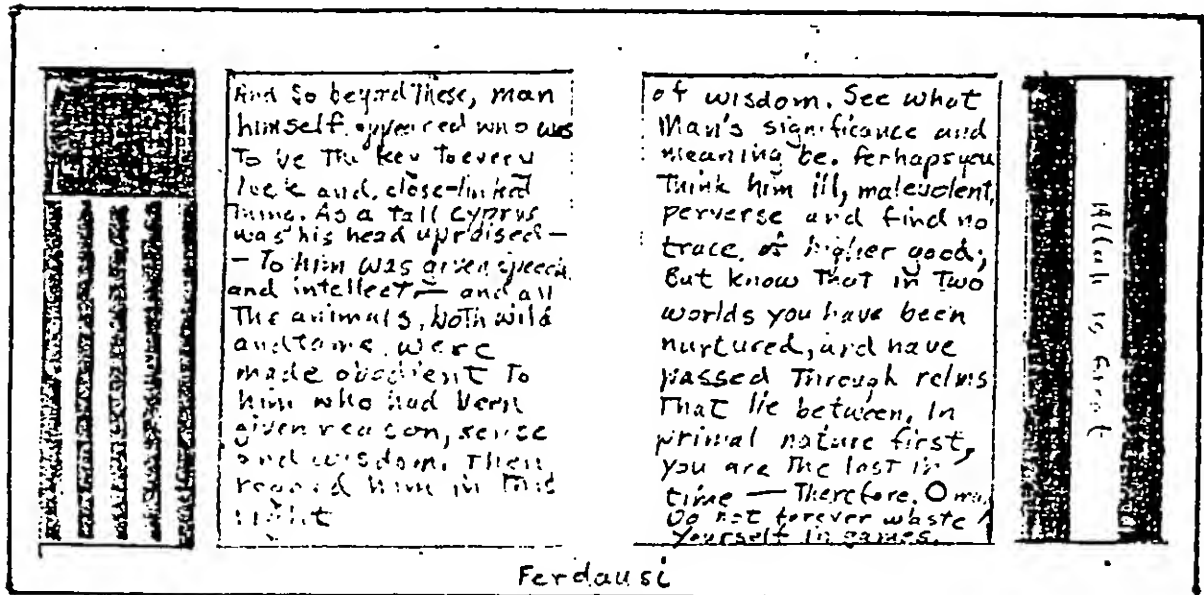 And So beyond These, man
himself appeared who was
To be The Key To every
lock and close-linked
Thing. As a Tall Cyprus
was his head upraised —
— To him was given speech
and intellect — and all
The animals, both wild
and tame, were
made obedient To
him who had been
given reason, sense
and wisdom. Then
regard him in This
light
of wisdom. See what
Man's significance and
meaning be. Perhaps you
Think him ill, malevolent,
perverse and find no
trace of higher good;
But know That in Two
worlds you have been
nurtured, and have
passed Through relms
That lie between. In
primal nature first,
you are The last in
time — Therefore, O man
Do not forever waste
yourself in games.
Allah is Great
Ferdausi